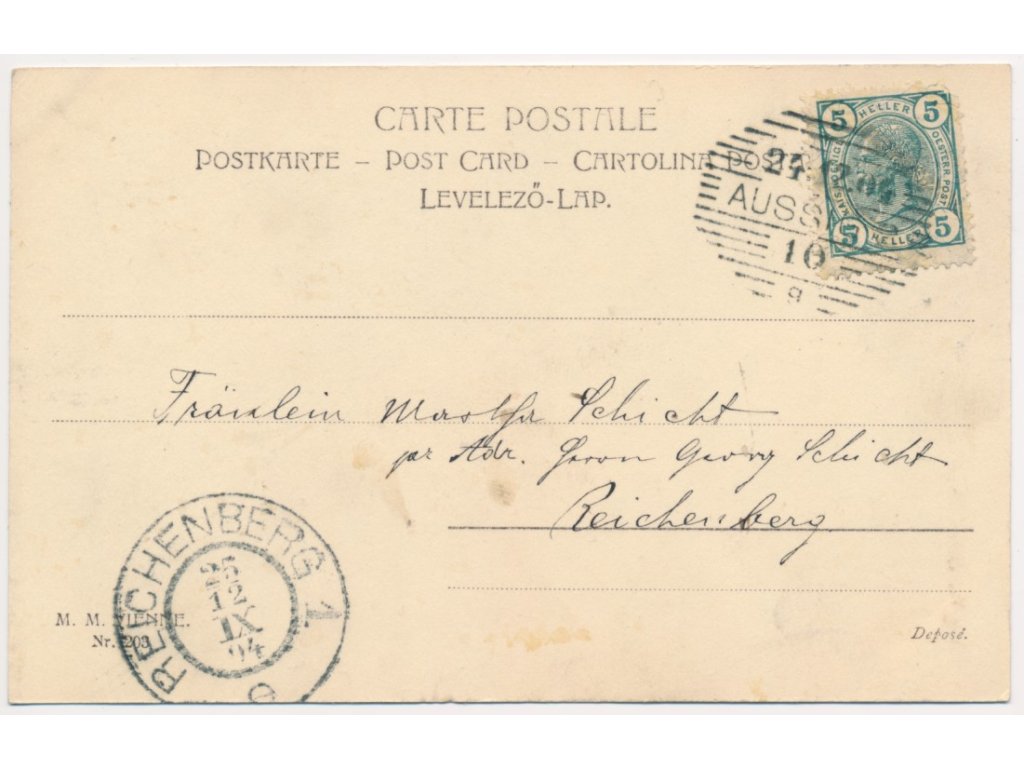 CARTE POSTALE
POSTKARTE – POST CARD – CARTOLINA POSTALE
LEVELEZŐ-LAP.
5 HELLER 5
KAIS. KÖNIGL. OESTERR. POST
5 HELLER 5
24.
AUSS
10
Fräulein Martha Schicht
per Adr. Herrn Georg Schicht
Reichenberg
REICHENBERG 1
25
12
IX
04
e
M. M. VIENNE.
Nr. 203
Deposé.